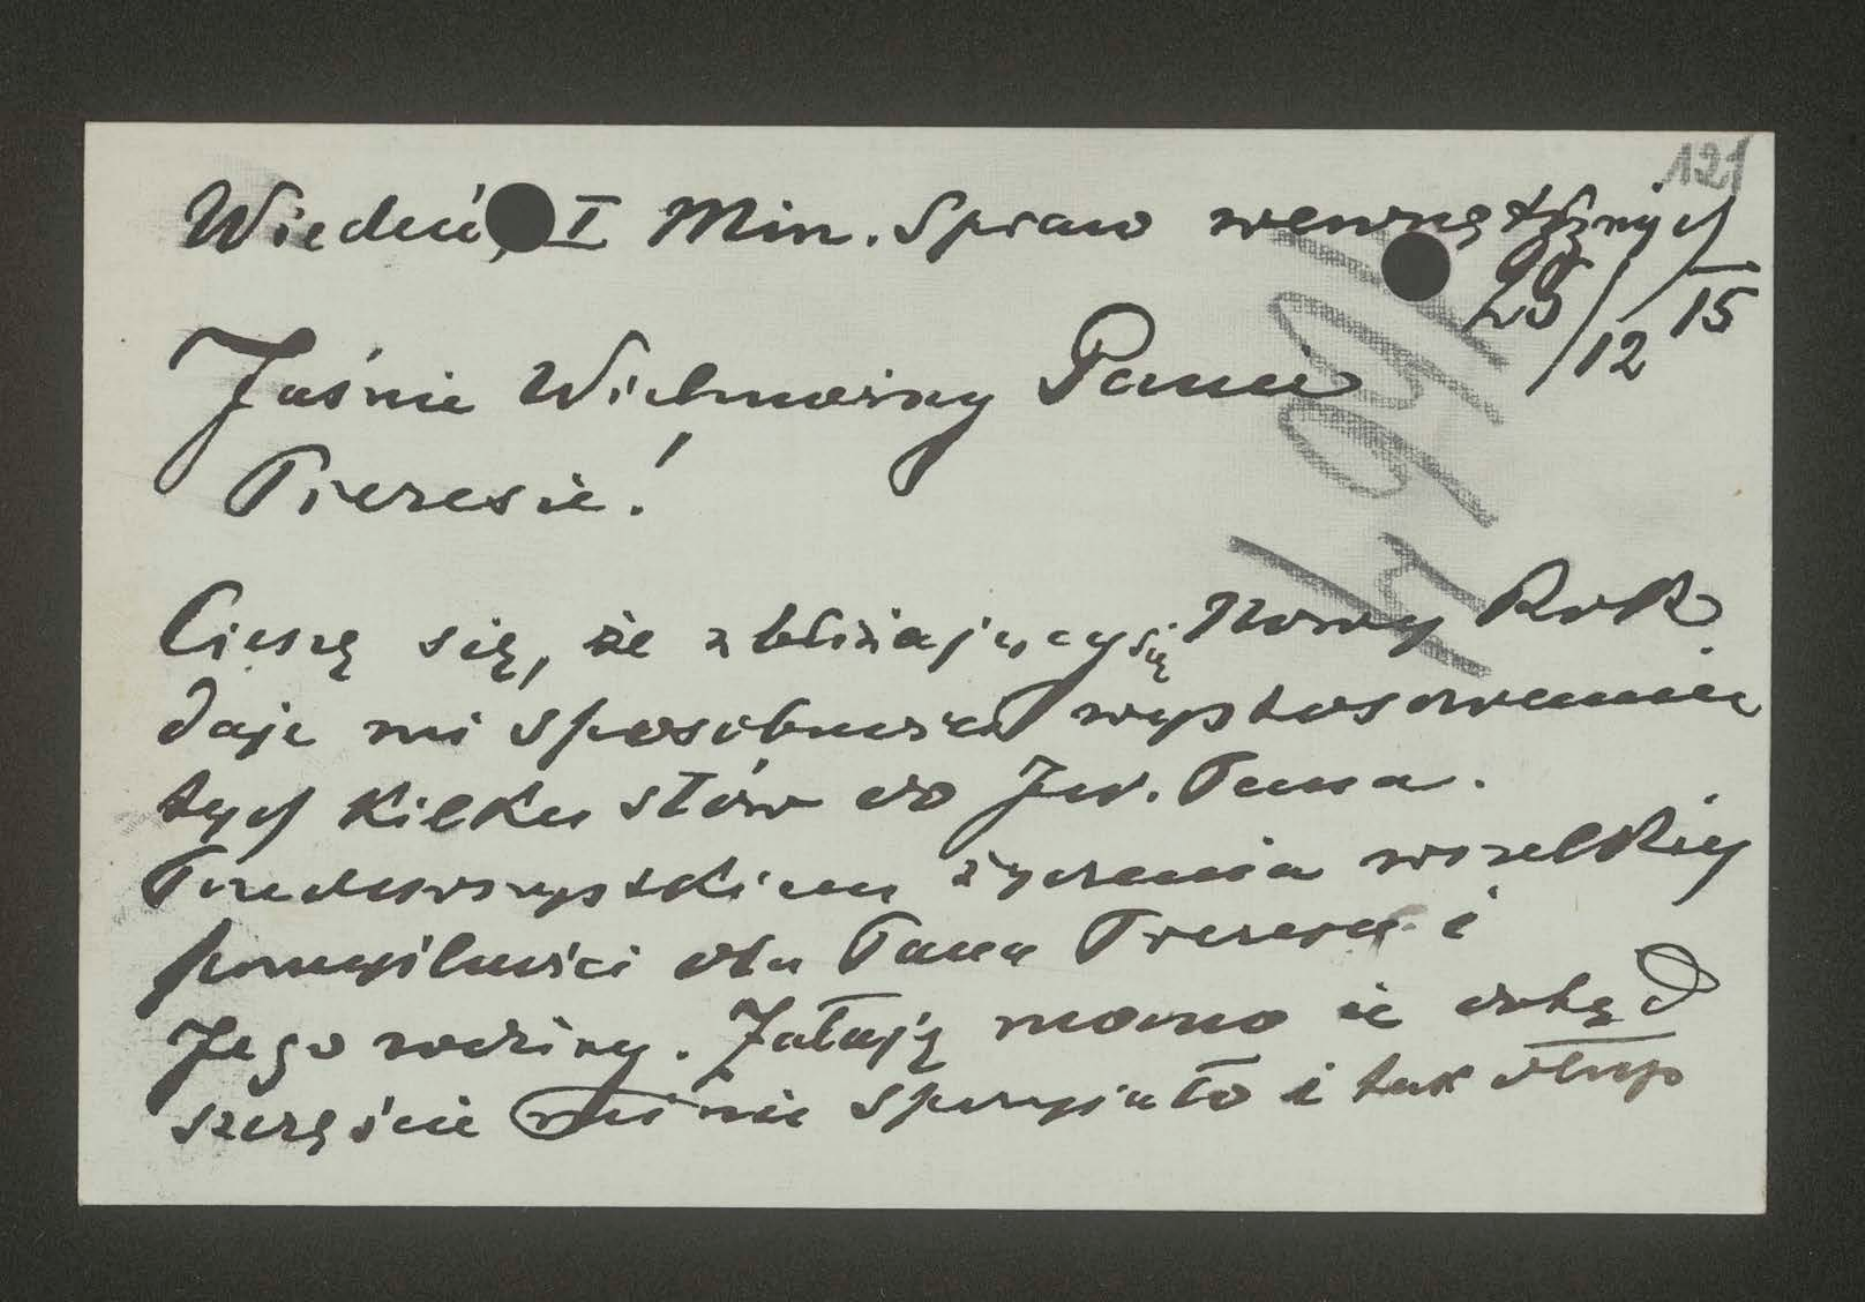 121
Wiedeń, I Min. Spraw wewnętrznych
25/12 15
Jaśnie Wielmożny Panie
Prezesie!
Cieszę się, że zbliżający się Nowy Rok
daje mi sposobność wystosowania
tych kilku słów do Jw. Pana.
Przedewszystkiem życzenia wszelkiej
pomyślności dla Pana Prezesa i
Jego rodziny. Żałuję mocno że dotąd
szczęście mi nie sprzyjało i tak